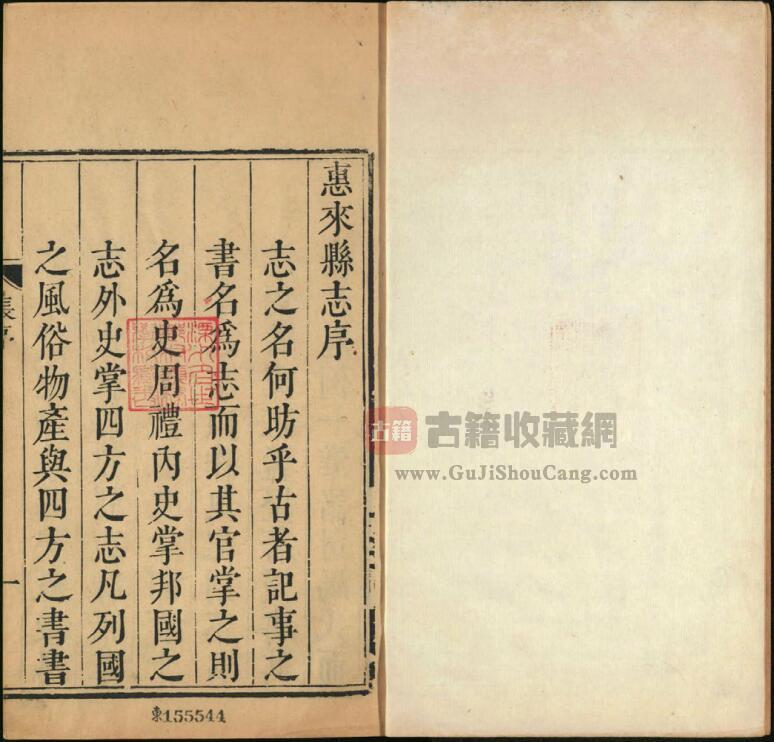 惠來縣志序
志之名何昉乎古者記事之
書名爲志而以其官掌之則
名爲史周禮內史掌邦國之
志外史掌四方之志凡列國
之風俗物產與四方之書書
張序
一
東155544
古籍
古籍收藏網
www.GuJiShouCang.com